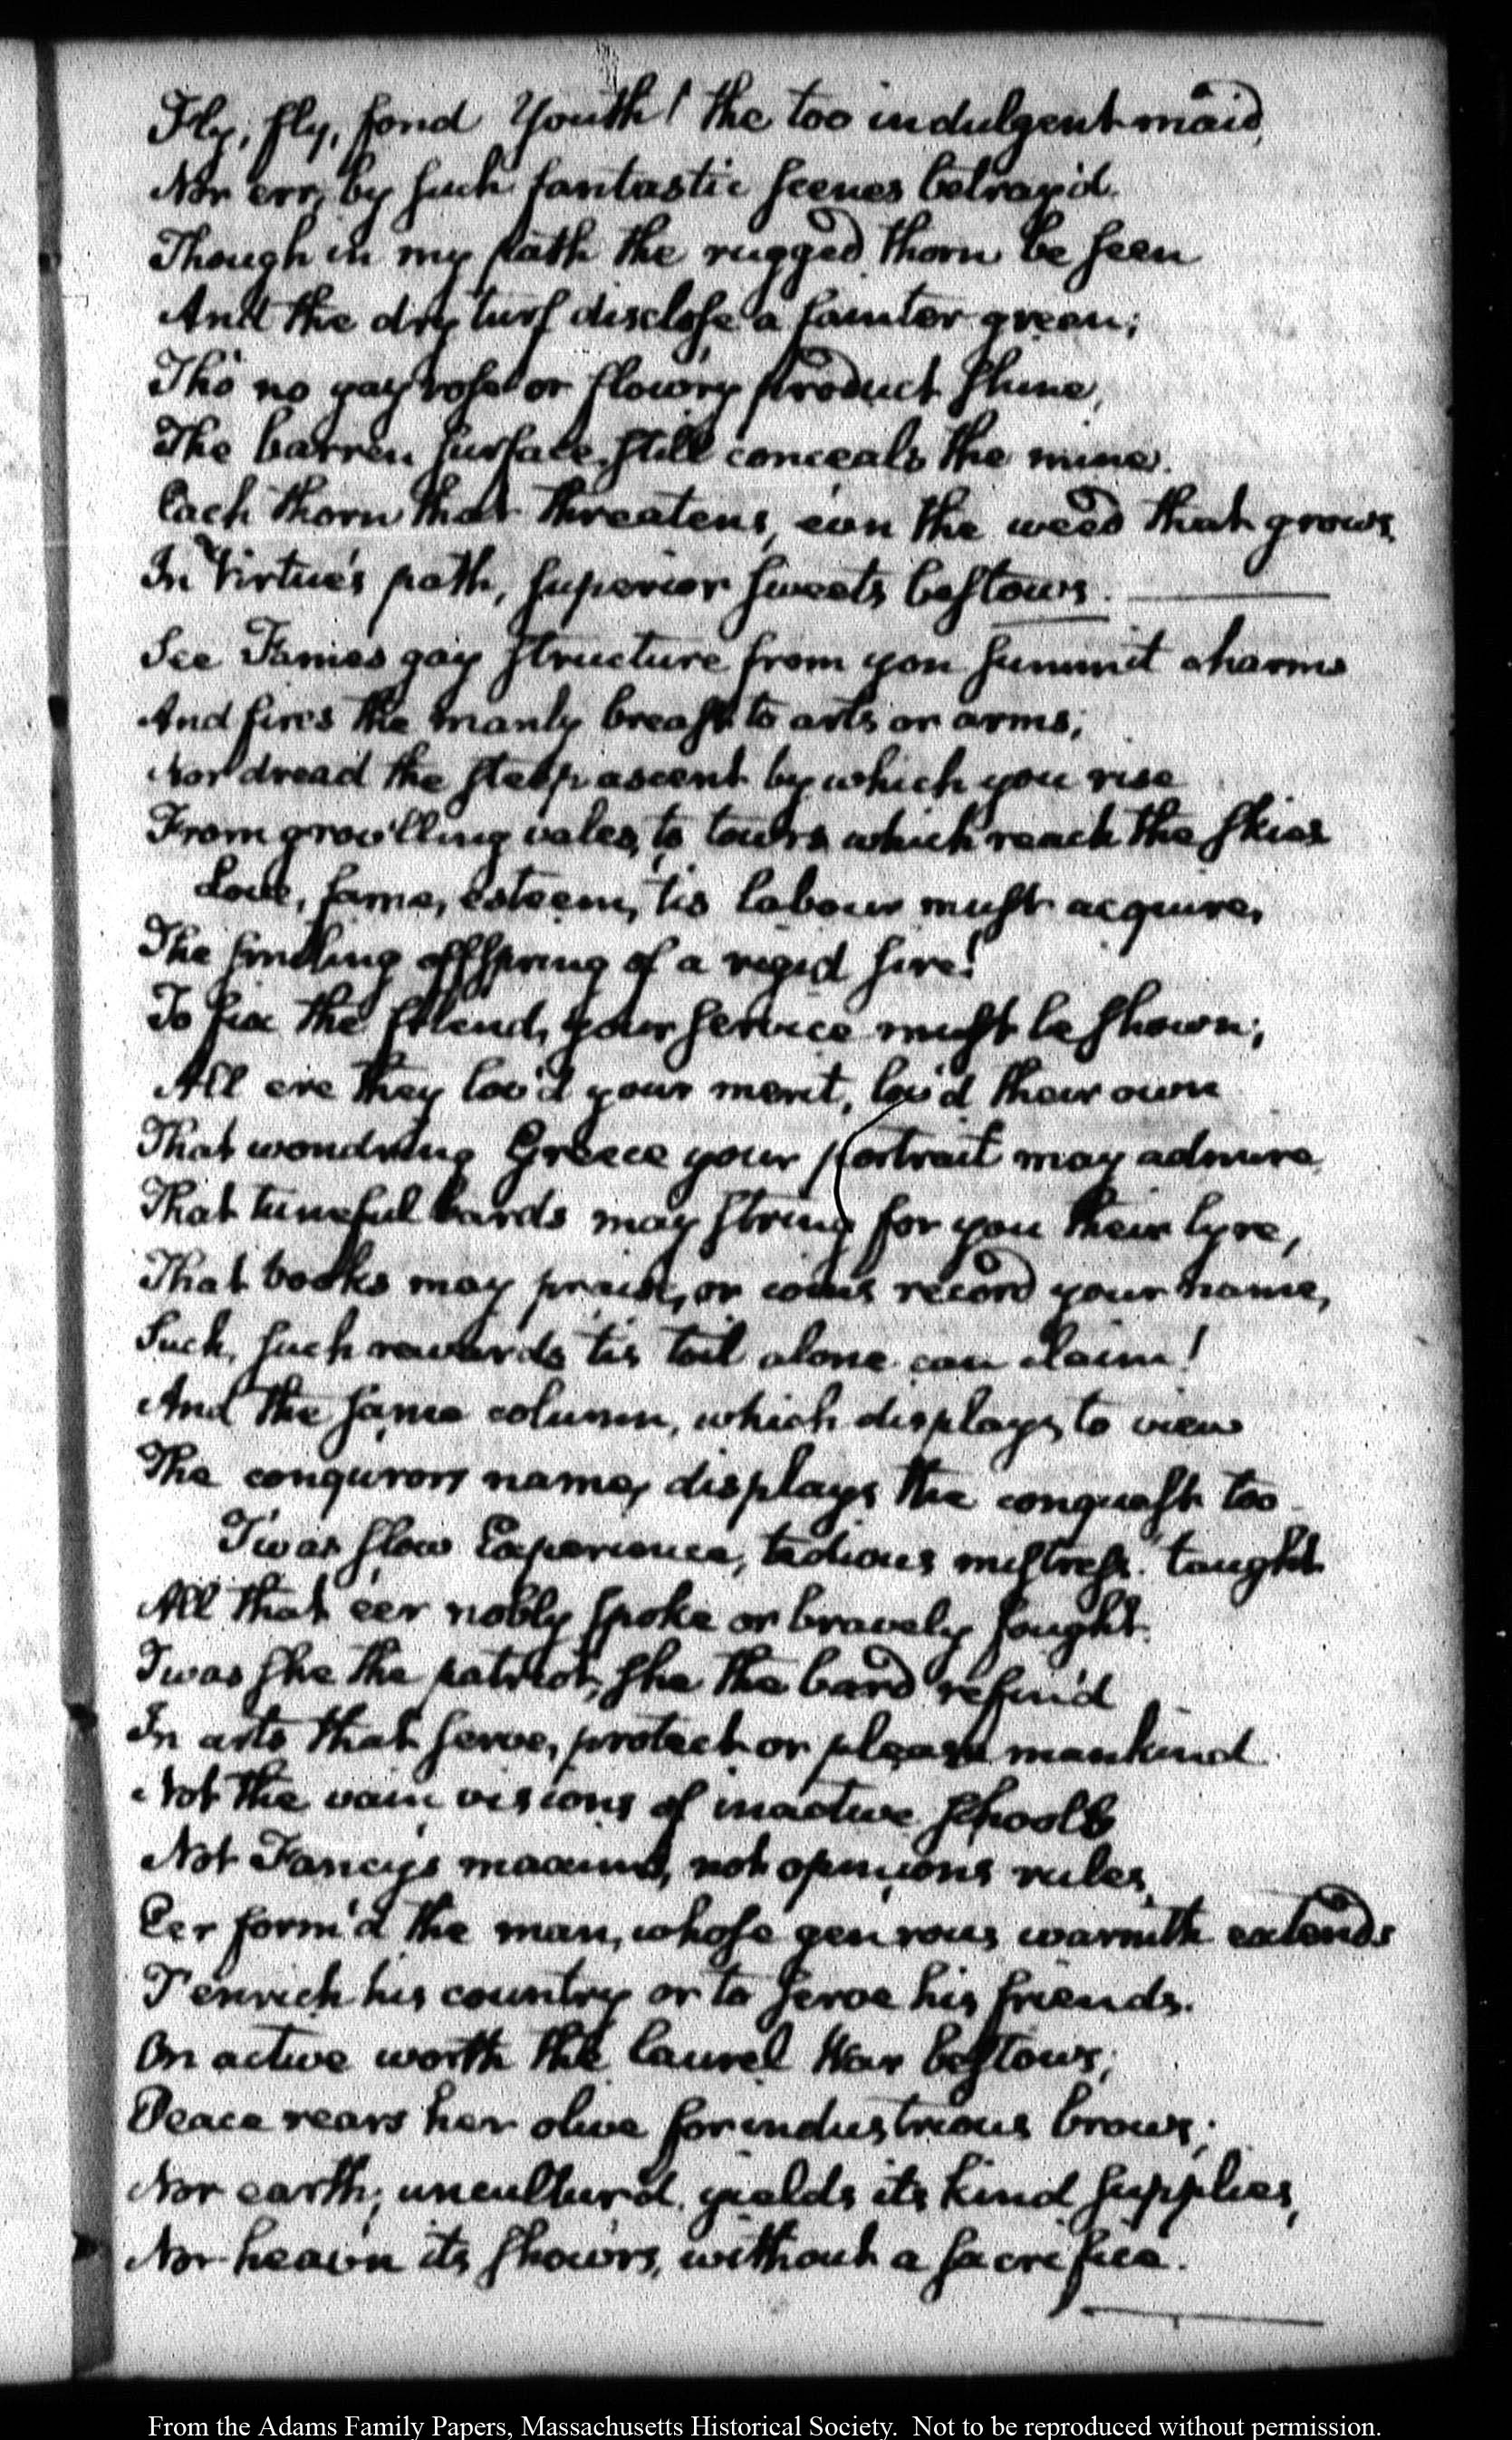 Fly, fly, fond Youth! the too indulgent maid,
Nor err, by such fantastic scenes betray'd.
Though in my path the rugged thorn be seen
And the dry turf disclose a fainter green;
Tho' no gay rose or flow'ry product shine,
The barren surface still conceals the mine.
Each thorn that threatens, ev'n the weed that grows
In Virtue's path, superior sweets bestows.
See Fames gay structure from yon summit charms
And fires the manly breast to arts or arms;
Nor dread the steep ascent by which you rise
From grov'lling vales, to tow'rs which reach the skies
Love, fame, esteem, 'tis labour must acquire,
The smiling offspring of a rigid sire!
To fix the friend, your service must be shown;
All ere they lov'd your merit, lov'd their own
That wond'ring Greece your portrait may admire
That tuneful bards may string for you their lyre,
That books may praise, or coins record your name,
Such, such rewards 'tis toil alone can claim!
And the same column, which displays to view
The conqu'rors name, displays the conquest too
'Twas slow Experience, tedious mistress taught
All that e'er nobly spoke or bravely fought.
'Twas she the patriot, she the bard refin'd
In arts that serve, protect or please mankind.
Not the vain visions of inactive schools
Not Fancy's maxims, not opinions rules,
E'er form'd the man, whose gen'rous warmth extends
T'enrich his country or to serve his friends.
On active worth the laurel War bestows;
Peace rears her olive for industrious brows;
Nor earth, uncultur'd, yields its kind supplies,
Nor heav'n its show'rs, without a sacrifice.
From the Adams Family Papers, Massachusetts Historical Society. Not to be reproduced without permission.